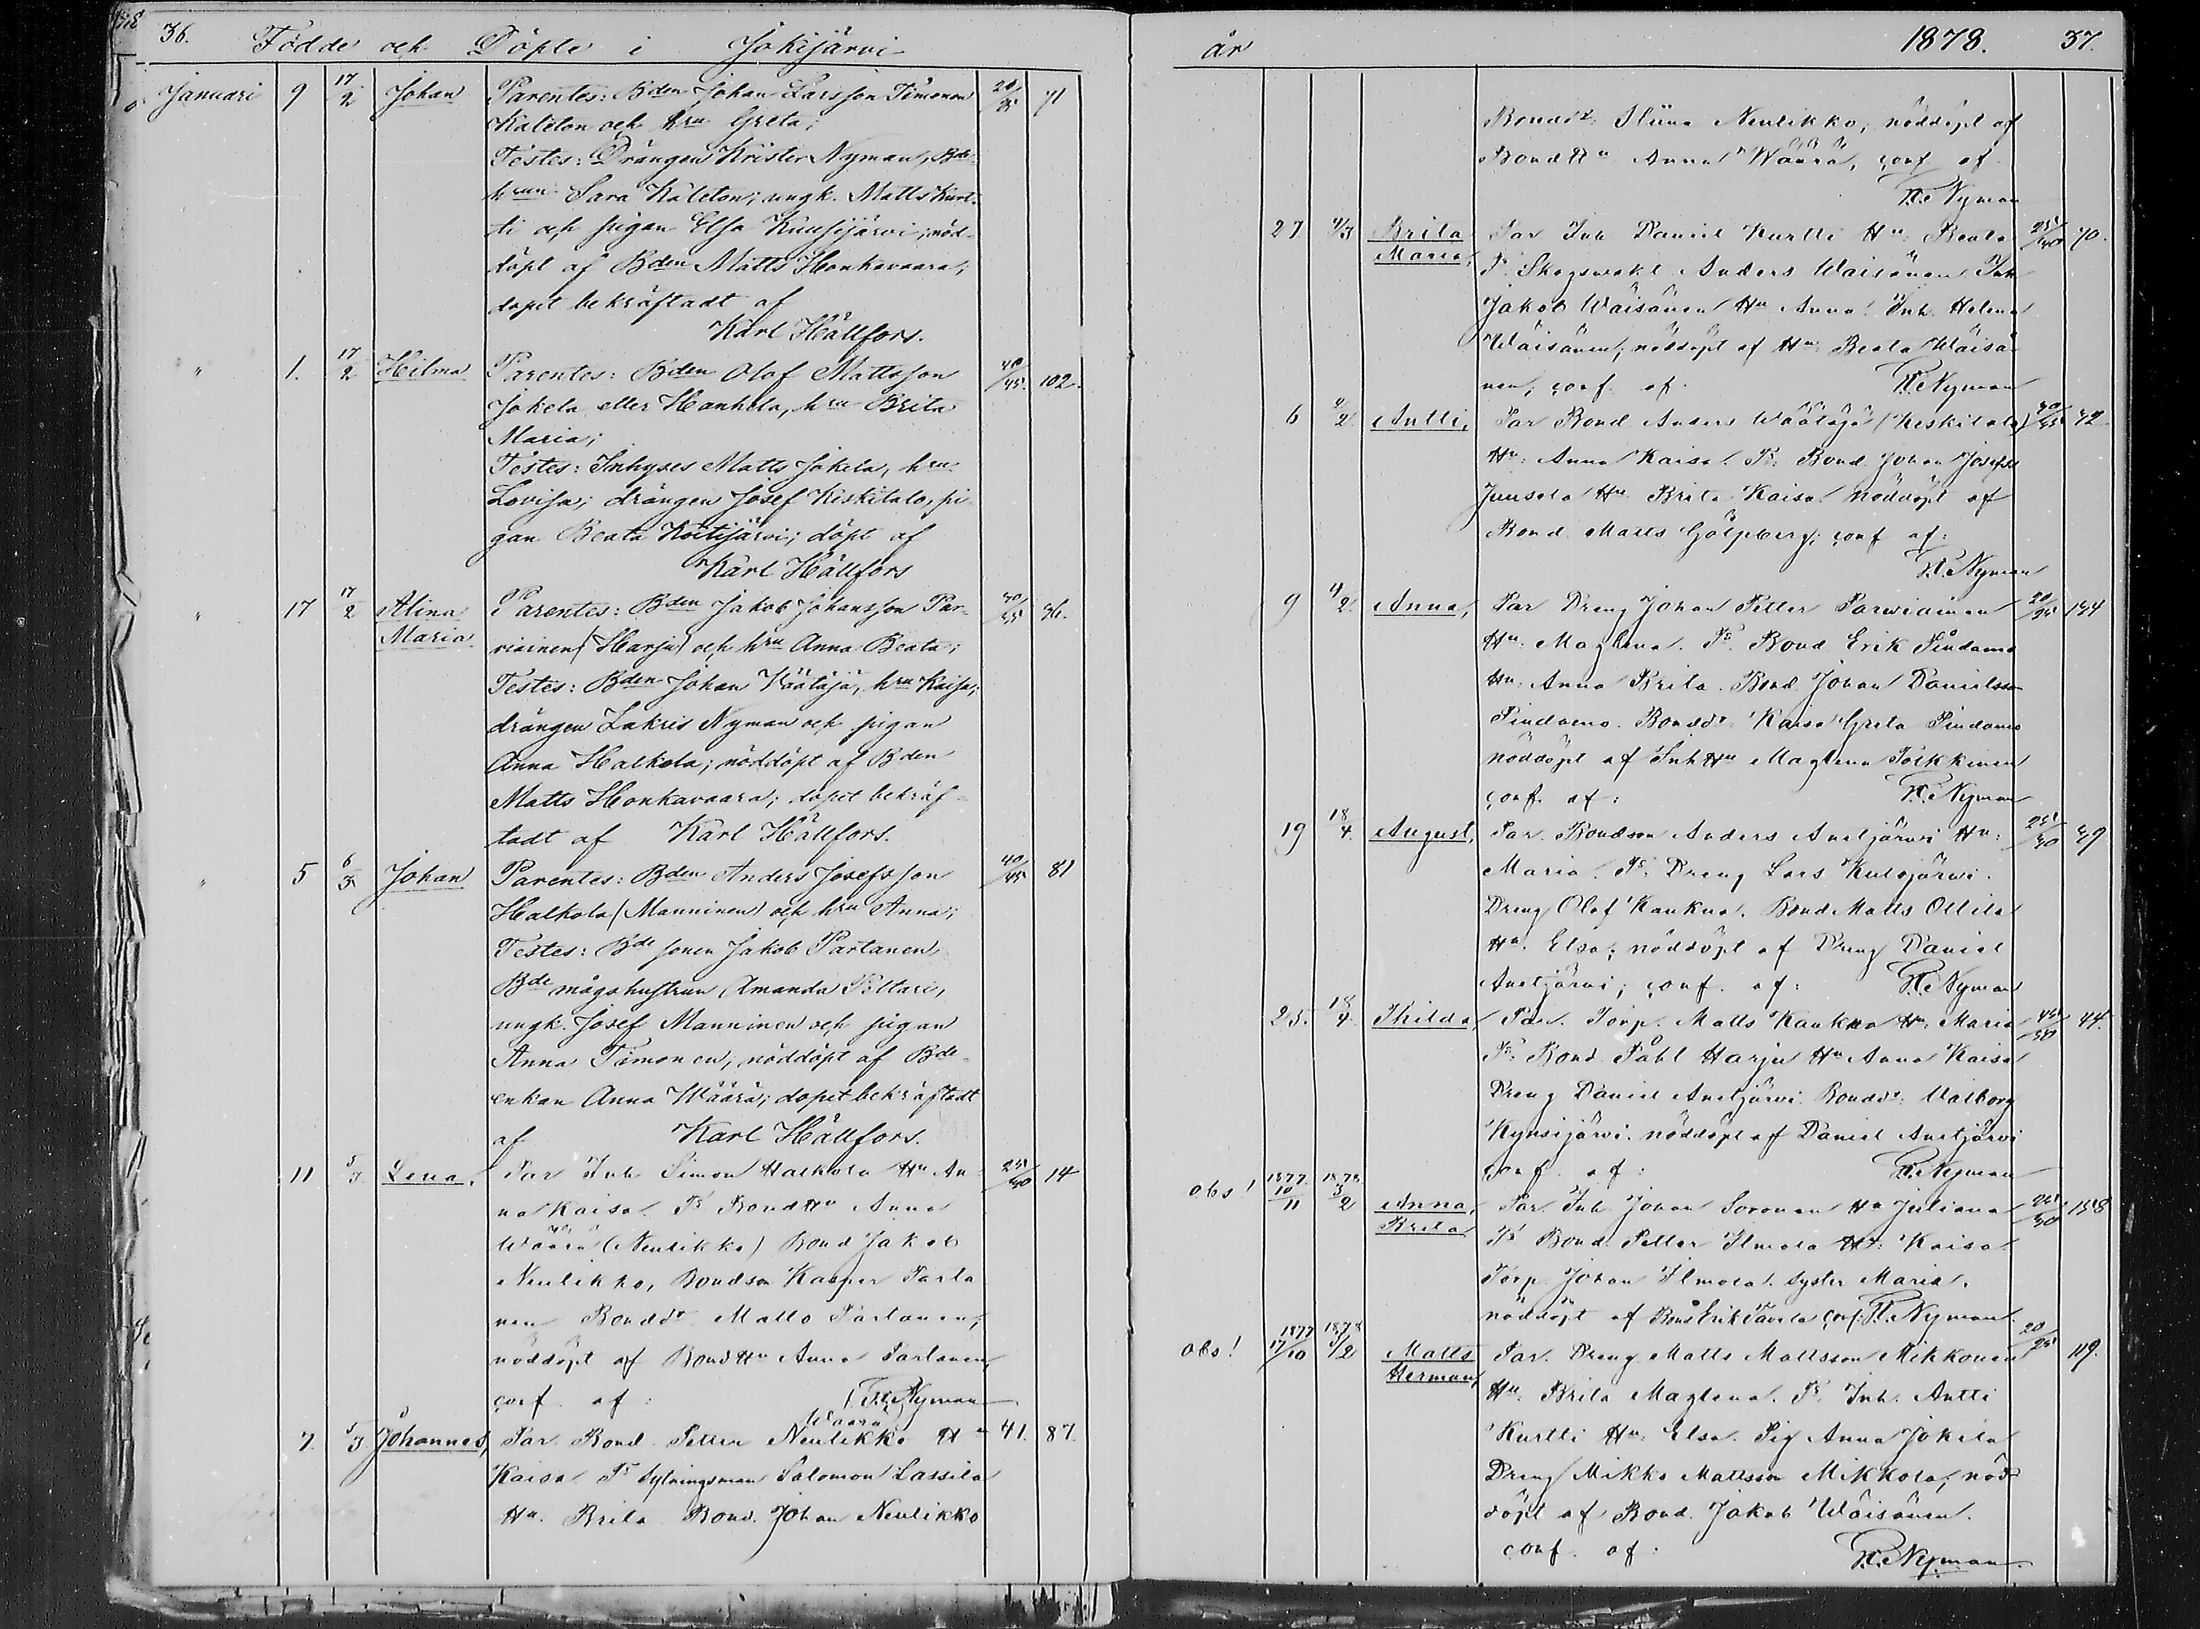 36. Födde och Döpte i Jokijärvi
Januari 9 17/2 Johan Parentes: Bden Johan Larsson Timonen 20/25 71
Käleton och hru Greta;
Testes: Drängen Krister Nyman, Bde-
hrun Sara Käleton; ungk. Matts Kurt-
ti och pigan Elsa Kuusijärvi; nöd-
döpt af Bden Matts Honkavaara;
dopet bekräftadt af
Karl Hällfors.
" 1. 17/2 Hilma Parentes: Bden Olof Mattsson 40/45. 102.
Jokela eller Hanhela, hru Brita
Maria;
Testes: Inhyses Matts Jokela, hru
Lovisa; drängen Josef Keskitalo, pi-
gan Beata Koitijärvi; döpt af
Karl Hällfors
" 17 17/2 Alina Parentes: Bden Jakob Johansson Par- 36.
Maria viainen (Harju) och hru Anna Beata;
Testes: Bden Johan Väätäjä, hru Kaisa;
drängen Zakris Nyman och pigan
Anna Halkola; nöddöpt af Bden
Matts Honkavaara; dopet bekräf-
tadt af Karl Hällfors.
" 5 6/3 Johan Parentes: Bden Anders Josefsson 40/45 81
Halkola (Manninen) och hru Anna;
Testes: Bde sonen Jakob Partanen,
Bde mågshustrun Amanda Pettari,
ungk. Josef Manninen och pigan
Anna Timonen; nöddöpt af Bde-
enkan Anna Wäärä; dopet bekräftadt
af Karl Hällfors.
11 5/3 Lena, Par Inh Simon Halkola Hu An- 25/30 14
na Kaisa. Ts BondHu Anna
Wäärä (Neulikko) Bond Jakob
Neulikko, Bondson Kasper Parta
nen Bondd. Partanen,
nöddöpt af BondHu Anna Partanen
conf. af: Nyman
Waara
7. 5/3 Johannes, Par Bond Petter Neulikko Hu 41. 87.
Kaisa. Ts Salomon Lassila
Hu. Brita Bond. Johan Neulikko
år 1878. 37.
Bondd: Neulikko, nöddöpt af
BondHu Anna Wäärä, conf af
Nyman
27 4/3 Brita Par Inh Daniel Kurtti Hu Beata 25/30 70.
Maria, Ts Skogsvakt Anders Waisänen Inh
Jakob Wäisänen Hu Anna. Inh. Helena
Wäisänen; nöddöpt af Hu Beata Wäisä-
nen, conf. af. Nyman
6 Antti, Par Bond Anders Wäätäjä (Keskitalo)
Hu. Anna Kaisa. Ts: Bond Johan Josefss
Juusola Hu Brita Kaisa. nöddöpt af
Bond Matts conf af:
Nyman
9 4/2. Anna, Par Dreng Johan Petter Parwiainen 20/25 134
Hu. Maglena. Ts. Bond Erik Pindamo
Hu. Anna Brita. Bond Johan Danielsson
Pindamo. Bondd. Kaisa Greta Pindamo
nöddöpt af InhHu Maglena Tolkkinen
conf. af: Nyman
19 18/4. August, Par. Bondson Anders Anetjärvi Hu: 25/30 39
Maria. Ts. Dreng Lars Kulojärvi.
Dreng Olof Kaukua. Bond Matts Ollila
Hu. Elsa; nöddöpt af Dreng Daniel
Anetjärvi; conf. af: Nyman
25. 18/4. Thilda, Par. Torp. Matts Kaukua Hu. Maria 44.
Ts: Bond Påhl Harju Hu Anna Kaisa
Dreng Daniel Anetjärvi Bondd. Walborg
Kynsijärvi. nöddöpt af Daniel Anetjärvi
conf. af: Nyman
obs! 1877 10/11 1878 3/2 Anna Par Inh. Johan Soronen Hu Juliana 25/30 158
Brita. Ts Bond Petter Ilmola Hu: Kaisa.
Torp. Johan Ilmola. syster Maria.
nöddöpt af Bond Erik conf: Nyman.
obs! 1877 17/10 1878 3/2 Matts Par. Dreng Matts Mattsson Mikkonen 20/25 119.
Herman, Hu. Brita Maglena. Ts Inh. Antti
Kurtti Hu. Elsa. Pig Anna Jokela
Dreng Mikko Mattsson Mikkola, nöd-
döpt af Bond. Jakob Wäisänen.
conf. af: Nyman